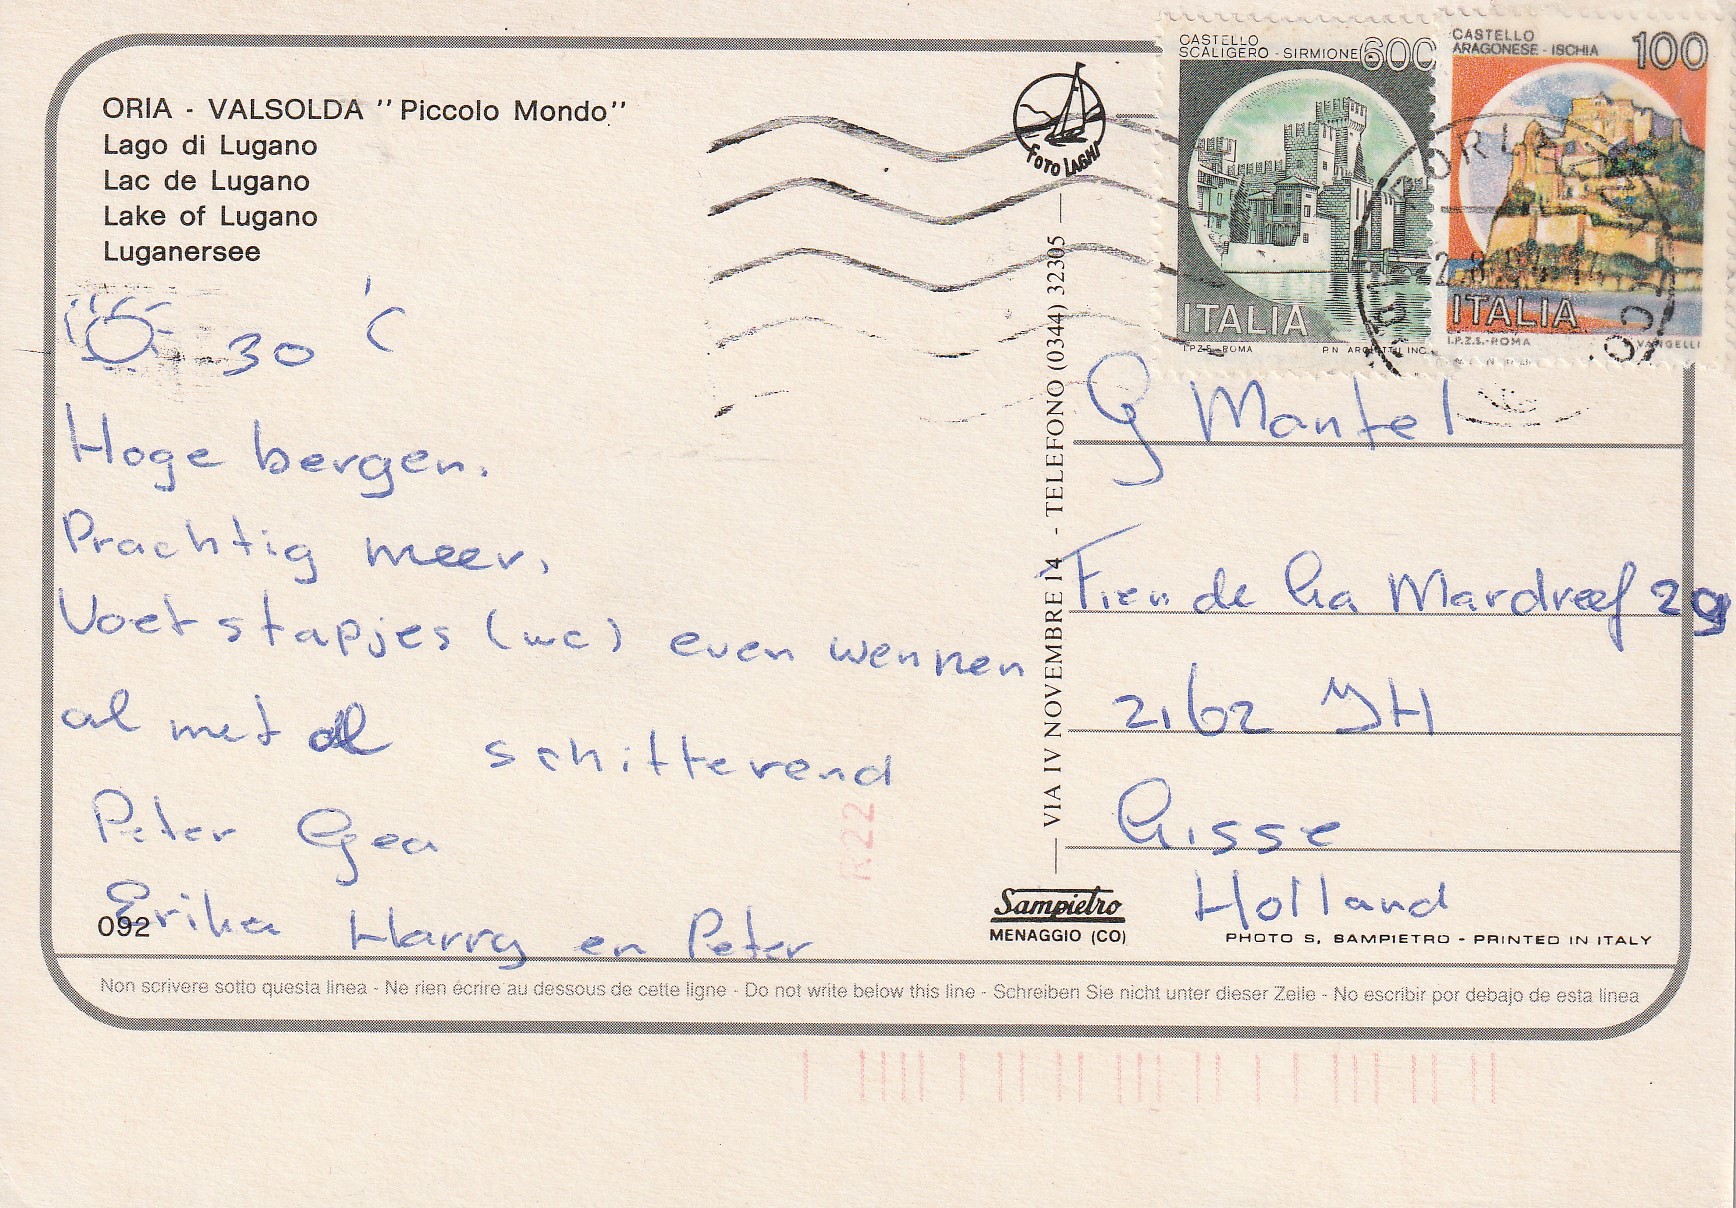 ORIA - VALSOLDA "Piccolo Mondo"
Lago di Lugano
Lac de Lugano
Lake of Lugano
Luganersee
30 °C
Hoge bergen.
Prachtig meer,
Voetstapjes (wc) even wennen
al met al schitterend
Peter Gea
Erika Harry en Peter
092
FOTO LAGHI
VIA IV NOVEMBRE 14 - TELEFONO (0344) 32305
Sampietro
MENAGGIO (CO)
CASTELLO
SCALIGERO - SIRMIONE 600
ITALIA
I.P.Z.S. - ROMA
CASTELLO
ARAGONESE - ISCHIA 100
ITALIA
I.P.Z.S. - ROMA
VANGELLI
PORLEZZA
G Mantel
Fien de la Mardreef 29
2162 JH
Lisse
Holland
PHOTO S. SAMPIETRO - PRINTED IN ITALY
R22
Non scrivere sotto questa linea - Ne rien écrire au dessous de cette ligne - Do not write below this line - Schreiben Sie nicht unter dieser Zeile - No escribir por debajo de esta linea